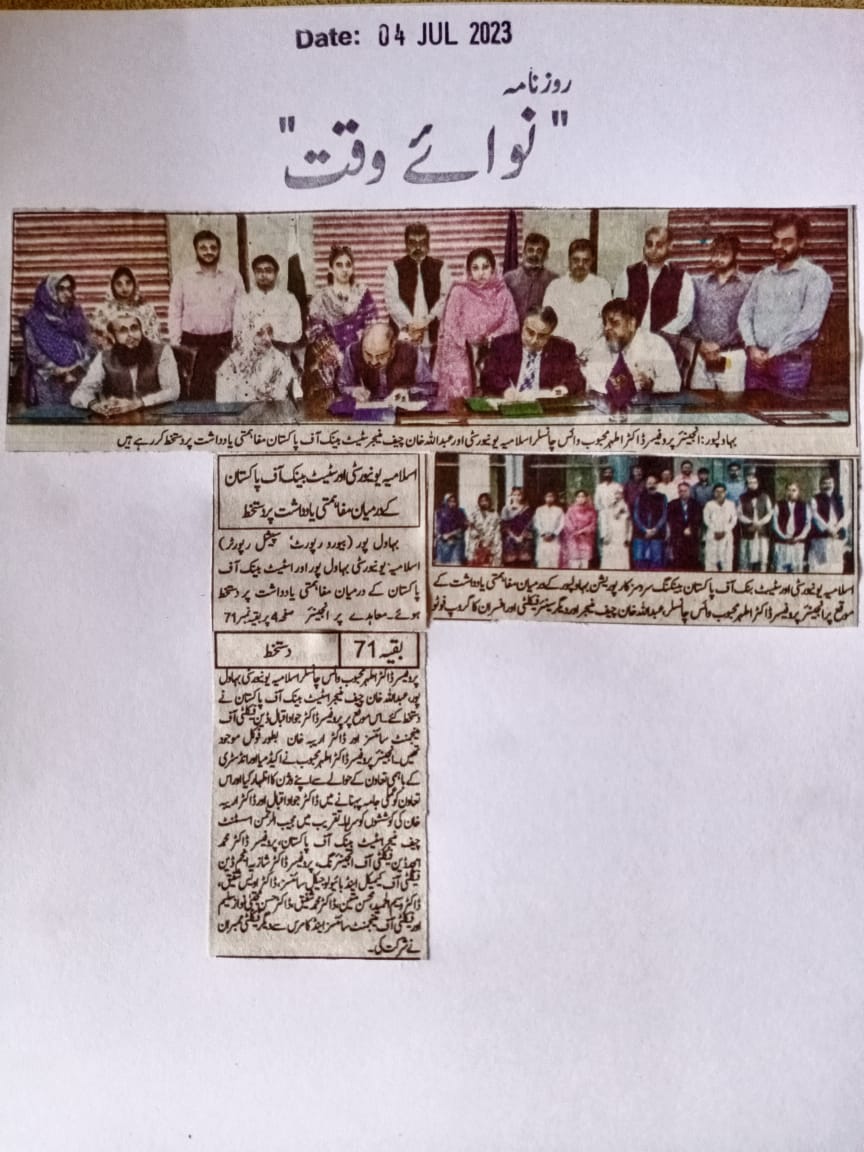 Date: 04 JUL 2023
روزنامہ
"نوائے وقت"
بہاولپور: انجینئر پروفیسر ڈاکٹر اطہر محبوب وائس چانسلر اسلامیہ یونیورسٹی اور عبداللہ خان چیف منیجر سٹیٹ بینک آف پاکستان مفاہمتی یادداشت پر دستخط کر رہے ہیں
اسلامیہ یونیورسٹی اور سٹیٹ بینک آف پاکستان
کے درمیان مفاہمتی یادداشت پر دستخط
بہاول پور (بیورو رپورٹ' سپیشل رپورٹر)
اسلامیہ یونیورسٹی بہاول پور اور اسٹیٹ بینک آف
پاکستان کے درمیان مفاہمتی یادداشت پر دستخط
ہوئے۔ معاہدے پر انجینئر صفحہ 4 پر بقیہ نمبر 71
اسلامیہ یونیورسٹی اور سٹیٹ بنک آف پاکستان بینکنگ سروسز کارپوریشن بہاولپور کے درمیان مفاہمتی یادداشت کے
موقع پر انجینئر پروفیسر ڈاکٹر اطہر محبوب وائس چانسلر، عبداللہ خان چیف منیجر اور دیگر سینئر فیکلٹی اور افسران کا گروپ فوٹو
بقیہ 71 دستخط
پروفیسر ڈاکٹر اطہر محبوب وائس چانسلر اسلامیہ یونیورسٹی بہاول
پور، عبداللہ خان چیف منیجر اسٹیٹ بینک آف پاکستان نے
دستخط کئے۔ اس موقع پر پروفیسر ڈاکٹر جواد اقبال ڈین فیکلٹی آف
مینجمنٹ سائنسز اور ڈاکٹر اریبہ خان بطور فوکل موجود
تھیں۔ انجینئر پروفیسر ڈاکٹر اطہر محبوب نے اکیڈمیا اور انڈسٹری
کے باہمی تعاون کے حوالے سے اپنے وژن کا اظہار کیا اور اس
تعاون کو عملی جامہ پہنانے میں ڈاکٹر جواد اقبال اور ڈاکٹر اریبہ
خان کی کوششوں کو سراہا۔ تقریب میں مجیب الرحمن اسسٹنٹ
چیف منیجر اسٹیٹ بینک آف پاکستان، پروفیسر ڈاکٹر محمد
امجد ڈین فیکلٹی آف انجینئرنگ، پروفیسر ڈاکٹر شازیہ انجم ڈین
فیکلٹی آف کیمیکل اینڈ بائیولوجیکل سائنسز، ڈاکٹر اویس شفیق،
ڈاکٹر وسیم الحمید، محسن متین، ڈاکٹر محمد شفیق، ڈاکٹر حسن مجتبیٰ نواز سلیم
اور فیکلٹی آف مینجمنٹ سائنسز اینڈ کامرس سے دیگر فیکلٹی ممبران
نے شرکت کی۔